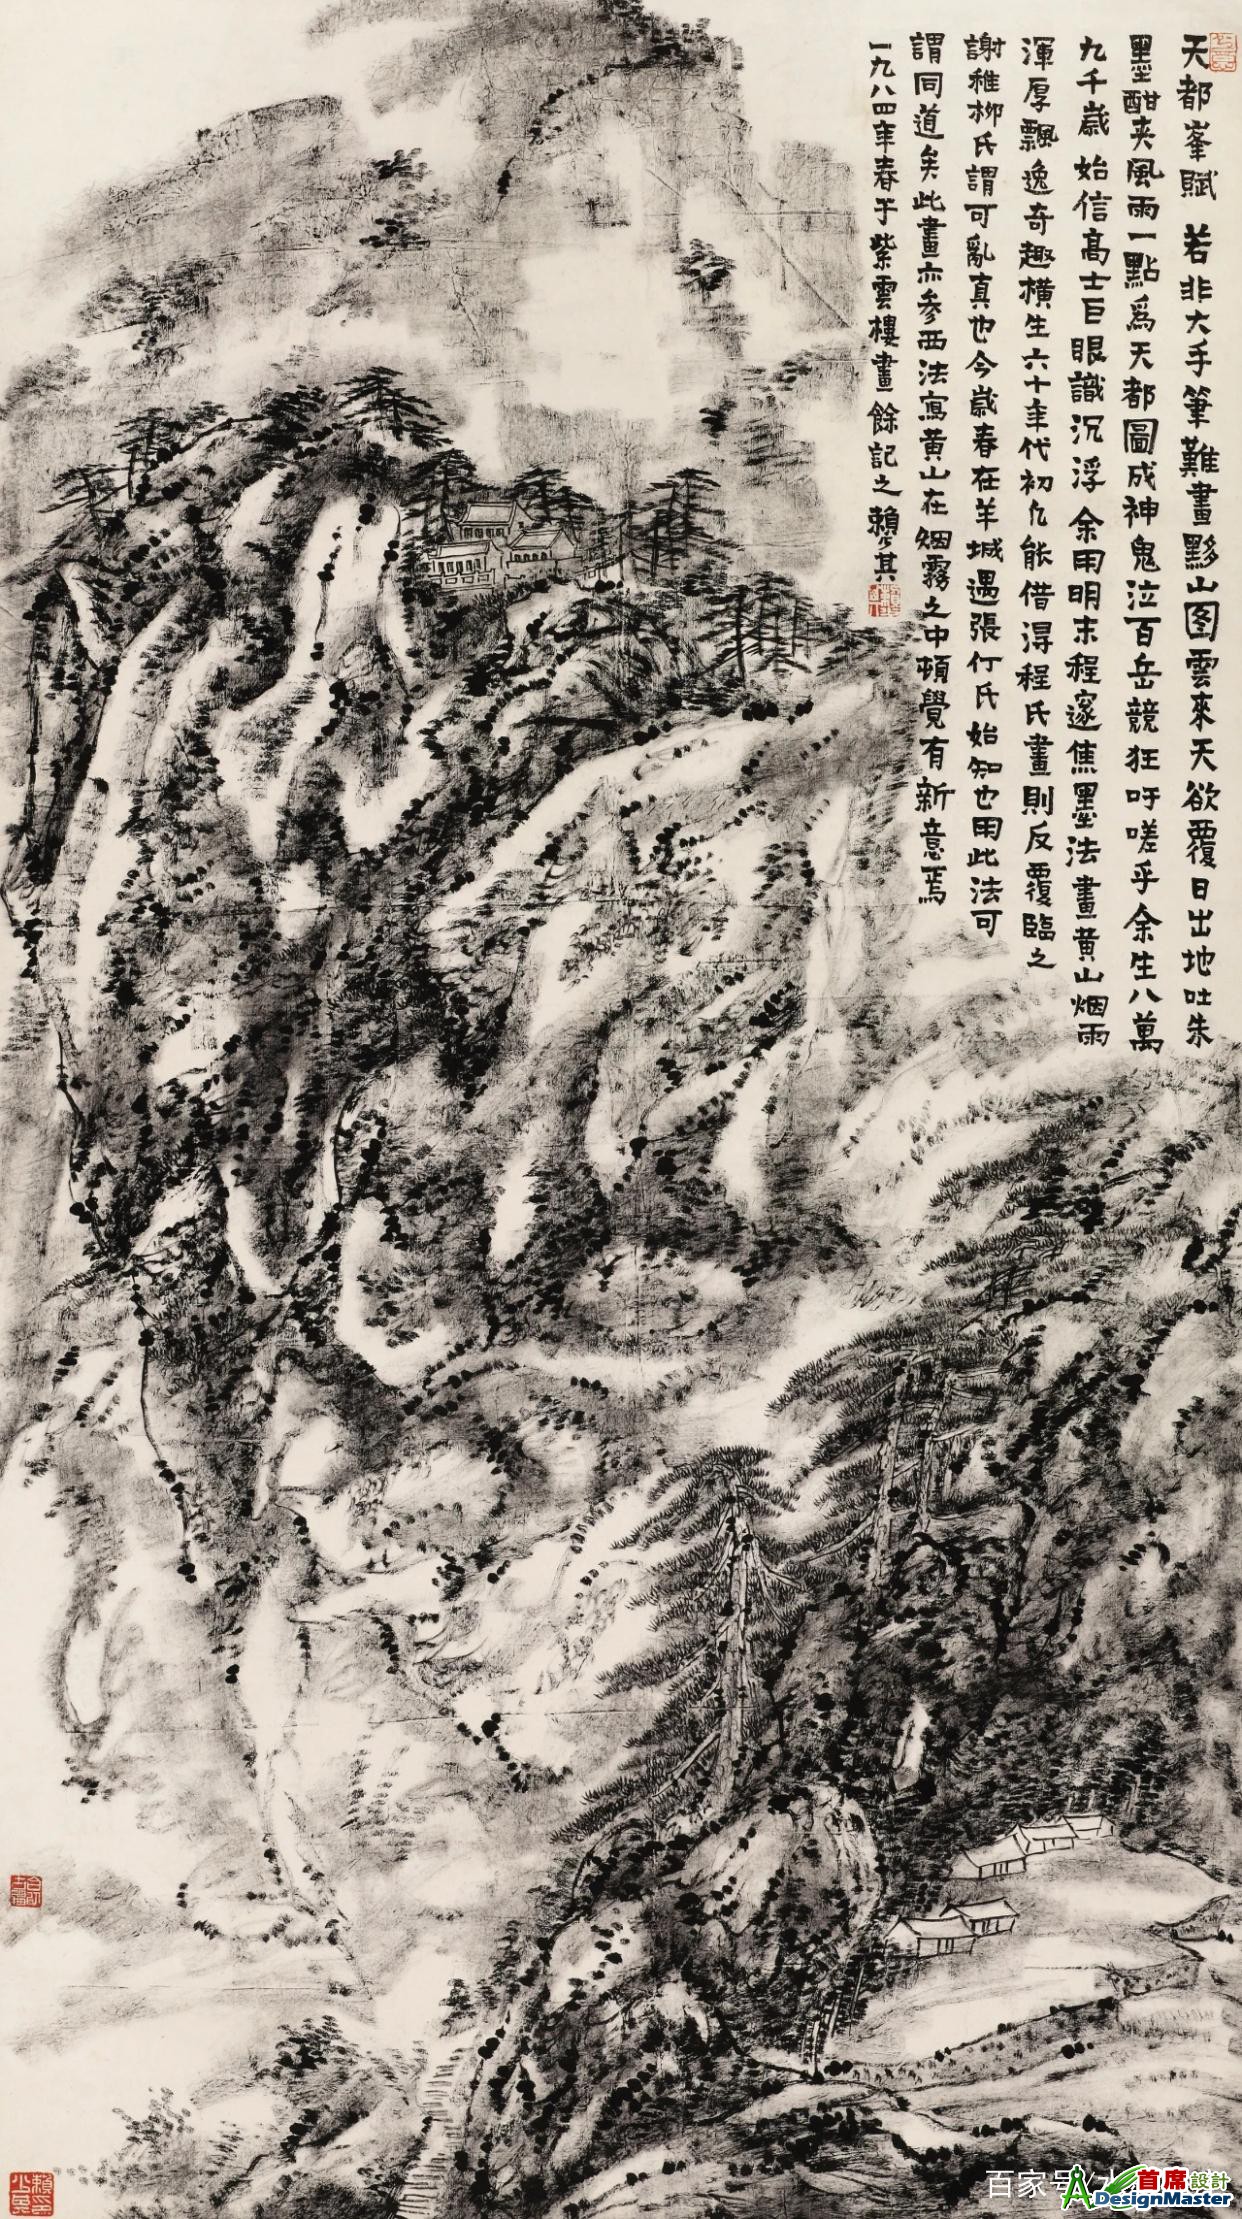 天都峯賦 若非大手筆難畫黟山图雲來天欲覆日出地吐朱
墨酣夹風雨一點爲天都圖成神鬼泣百岳競狂吁嗟乎余生八萬
九千歲 始信高士巨眼識沉浮 余用明末程邃焦墨法畫黄山烟雨
渾厚飄逸奇趣橫生六十年代初仇能借得程氏畫則反覆臨之
謝稚柳氏謂可亂真也今歲春在羊城遇張仃氏始知也用此法可
謂同道矣此畫亦参西法寫黄山在烟霧之中頓覺有新意焉
一九八四年春于紫雲樓畫餘記之賴少其
百家号
首席設計
DesignMaster